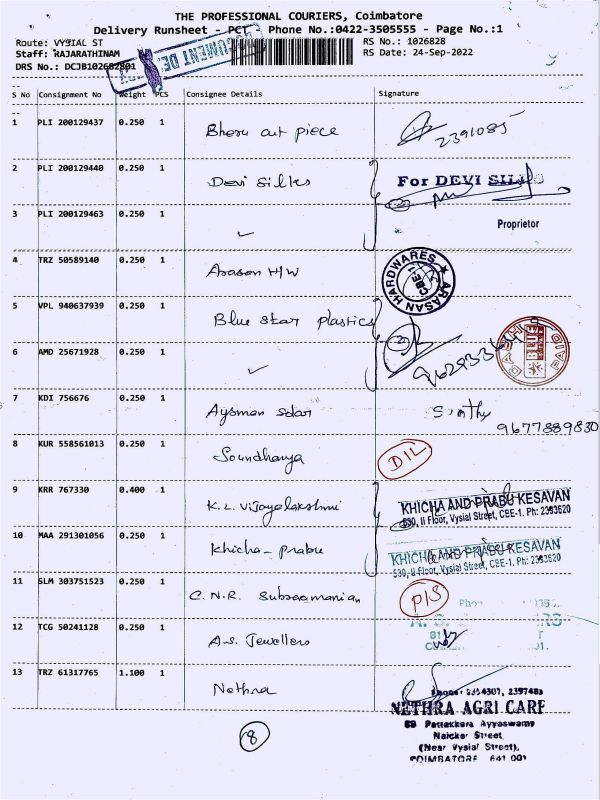 THE PROFESSIONAL COURIERS, Coimbatore
Delivery Runsheet - PCT Phone No.:0422-3505555 - Page No.:1
Route: VYSIAL ST
RS No.: 1026828
Staff: RAJARATHINAM
RS Date: 24-Sep-2022
DRS No.: DCJB102682801
S No Consignment No Weight PCS Consignee Details Signature
1 PLI 200129437 0.250 1 Bheru cut piece 2391085
2 PLI 200129440 0.250 1 Devi Silks For DEVI SILKS
3 PLI 200129463 0.250 1 Proprietor
4 TRZ 50589140 0.250 1 Arasan H/W ARASAN HARDWARES CBE-1
5 VPL 940637939 0.250 1 Blue Star plastics
6 AMD 25671928 0.250 1
7 KDI 756676 0.250 1 Aysman solar
9677889830
8 KUR 558561013 0.250 1 Soundhanya DIL
9 KRR 767330 0.400 1 K.L. Vijayalakshmi KHICHA AND PRABU KESAVAN
530, II Floor, Vysial Street, CBE-1. Ph: 2393620
10 MAA 291301056 0.250 1 Khicha - Prabu KHICHA AND PRABU KESAVAN
530, II Floor, Vysial Street, CBE-1. Ph: 2393620
11 SLM 303751523 0.250 1 C.N.R. Subramanian P/S
12 TCG 50241128 0.250 1 A.S. Jewellers
13 TRZ 61317765 1.100 1 Nethra
NETHRA AGRI CARE
89 Pattakkara Ayyaswamy
Naicker Street,
(Near Vysial Street),
COIMBATORE 641 001
8